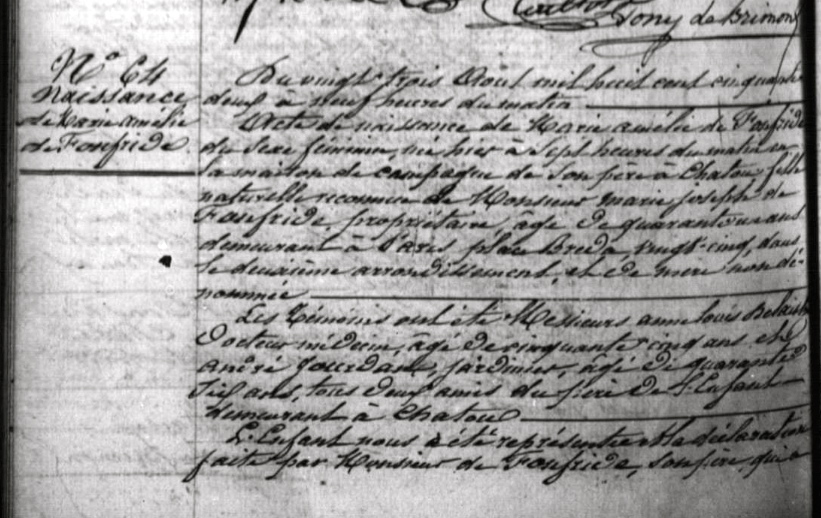 Tony de Brimont
N° 64
Naissance
de Marie amélie
de Fonfride
Du vingt trois Aout mil huit cent cinquante
deux à neuf heures du matin
Acte de naissance de Marie amélie de Fonfride
du sexe féminin, née hier à sept heures du matin en
la maison de campagne de son père à Chatou, fille
naturelle reconnue de Monsieur marie joseph de
Fonfride, propriétaire, âgé de quarante un ans
demeurant à Paris, place Breda, vingt-cinq, dans
le deuxième arrondissement, et de mère non dé-
nommée
Les témoins ont été Messieurs anne Louis
Docteur médecin, âgé de cinquante cinq ans, et
André Jourdan, jardinier, âgé de quarante
ans, tous deux amis du père de l'Enfant
demeurant à Chatou
L'Enfant nous a été représenté et la déclaration
faite par Monsieur de Fonfride, son père, qui a